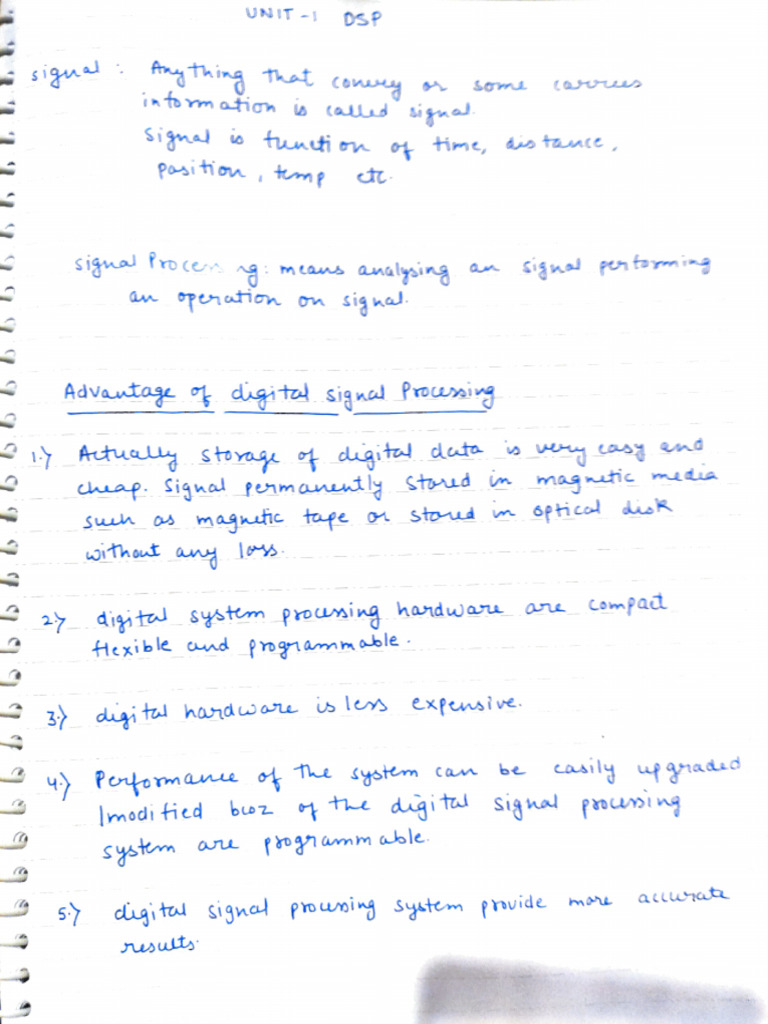 UNIT-1 DSP
signal : Anything that convey or some carries
information is called signal.
Signal is function of time, distance,
position, temp etc.
signal Processing: means analysing an signal performing
an operation on signal.
Advantage of digital signal Processing
1.) Actually storage of digital data is very easy and
cheap. Signal permanently stored in magnetic media
such as magnetic tape or stored in optical disk
without any loss.
2.) digital system processing hardware are compact
flexible and programmable.
3.) digital hardware is less expensive.
4.) Performance of the system can be easily upgraded
/modified bcoz of the digital signal processing
system are programmable.
5.) digital signal processing system provide more accurate
results.